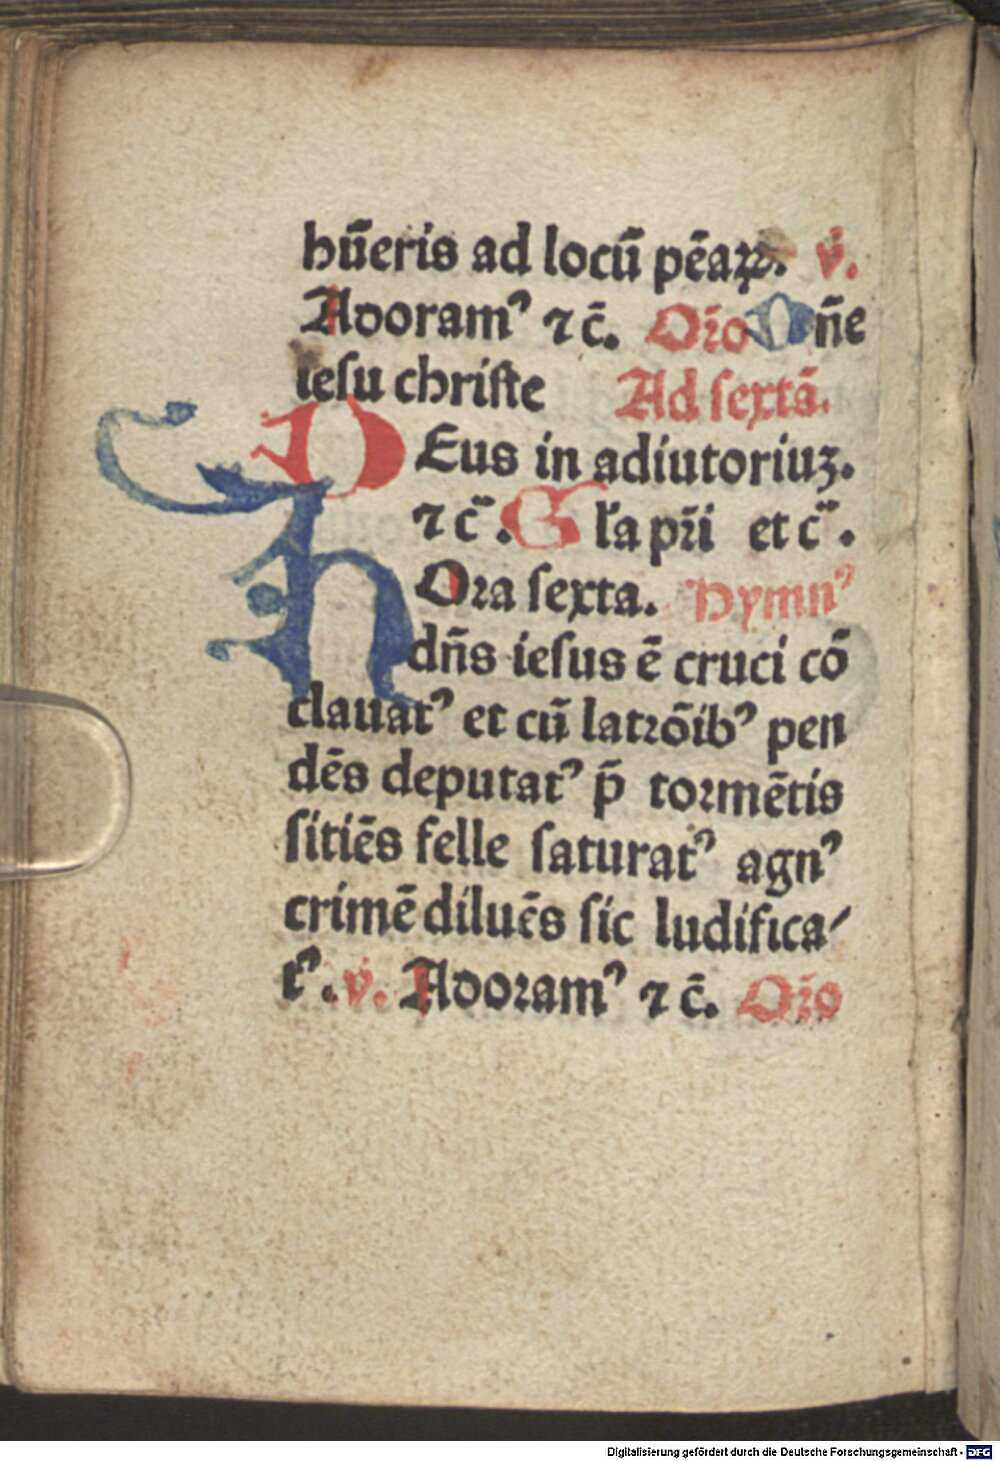 hūeris ad locū pēaꝝ. v̇.
Adoramꝰ ⁊ c̄. Oro Dn̄e
iesu christe Ad sextā.
DEus in adiutoriuꝫ.
⁊ c̄. Gl'a pr̄i et c̄.
hOra sexta. Hymnꝰ
dn̄s iesus ē cruci cō
clauatꝰ et cū latrōibꝰ pen
dēs deputatꝰ p̄ tormētis
sitiēs felle saturatꝰ agnꝰ
crimē diluēs sic ludifica⸗
tꝰ. v̇. Adoramꝰ ⁊ c̄. Oro
Digitalisierung gefördert durch die Deutsche Forschungsgemeinschaft - DFG